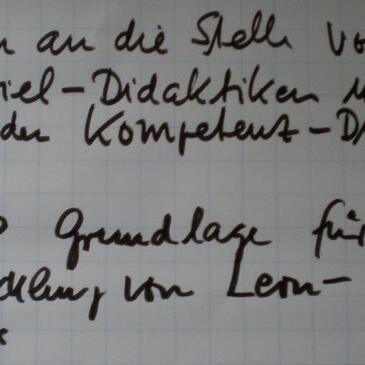 n an die Stelle vo
iel-Didaktiken
der Kompetenz-D
Grundlage für
cklung von Lern-